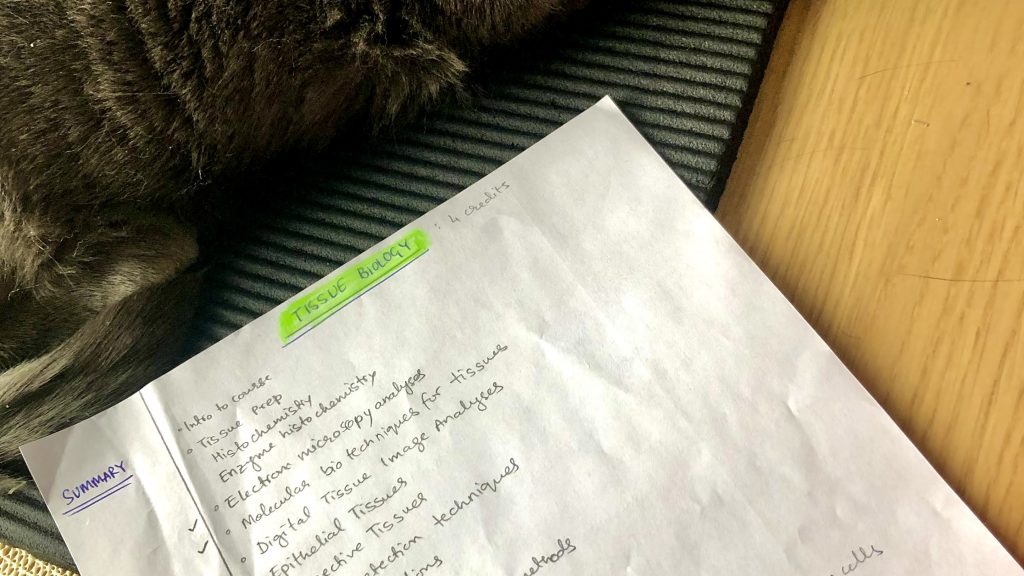 TISSUE BIOLOGY : 4 credits
SUMMARY
• Intro to course
• Tissue Prep
Histochemistry
Enzyme histochemistry
• Electron microscopy analyses
• Molecular bio techniques for tissues
• Digital Tissue Image Analyses
• Epithelial Tissues
ective Tissues
etection techniques
ions
ethods
cells